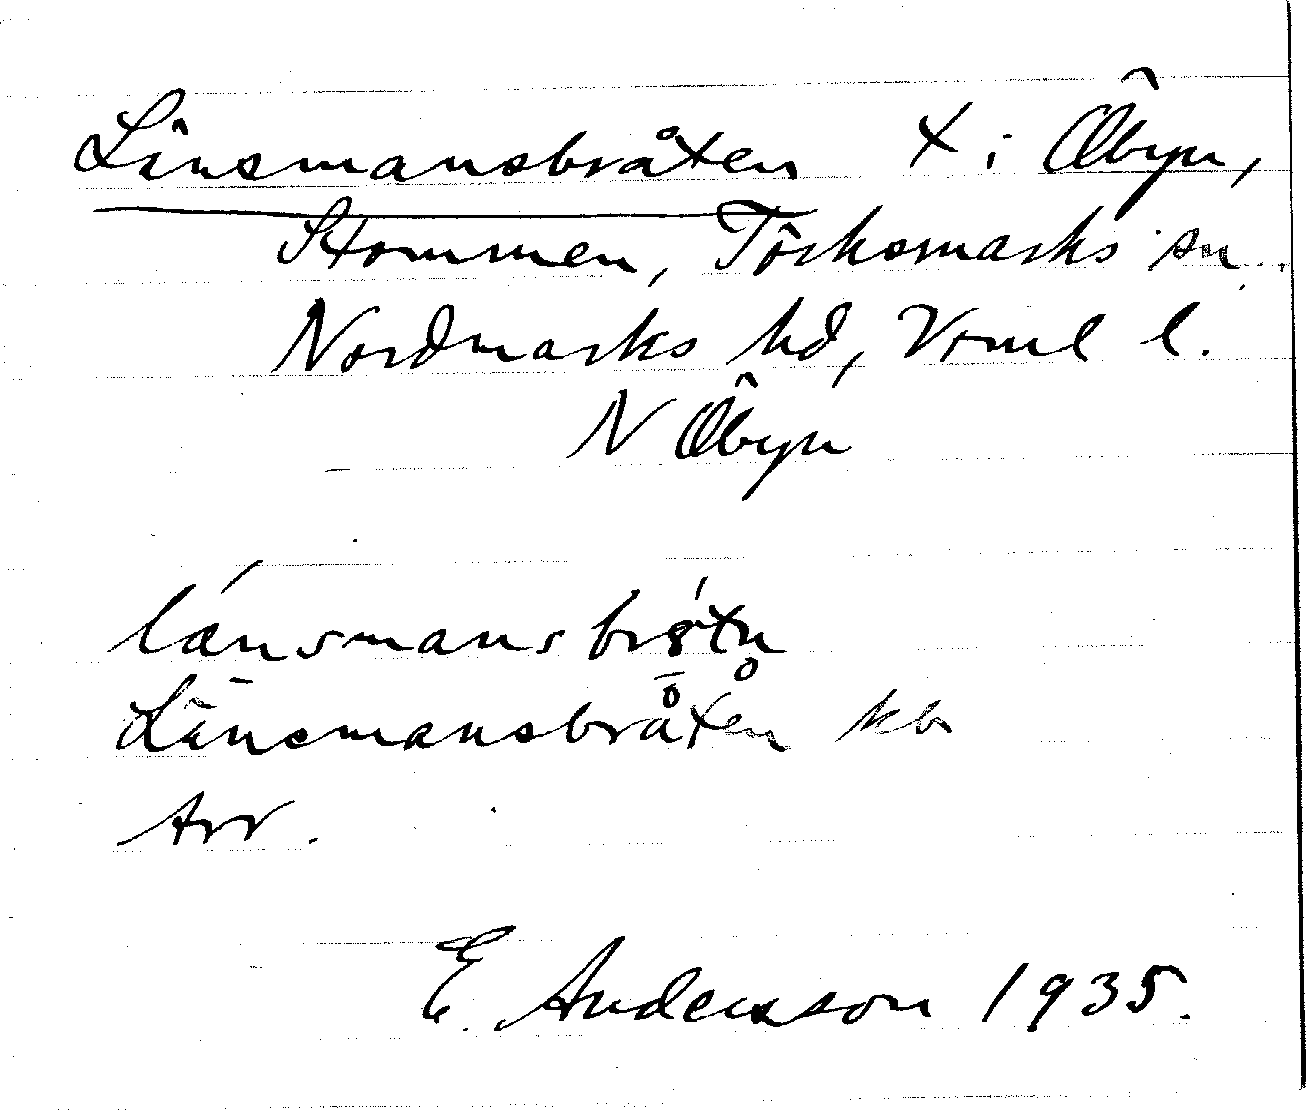 Länsmansbråten t i Öbyn,
Stommen, Töcksmarks sn
Nordmarks hd, Vrml l.
N Öbyn
länsmansbrøtn
Länsmansbråten kb
Arr.
E. Andersson 1935.